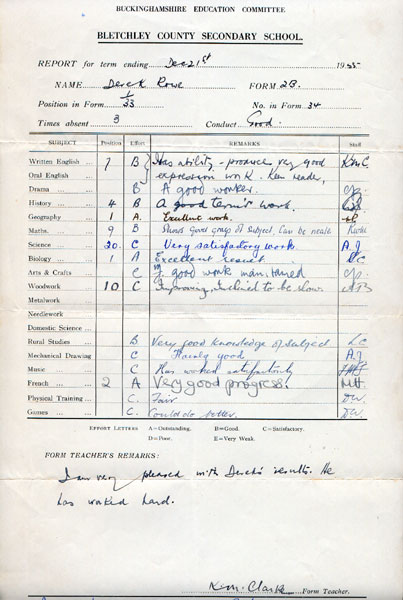 BUCKINGHAMSHIRE EDUCATION COMMITTEE
BLETCHLEY COUNTY SECONDARY SCHOOL.
REPORT for term ending Dec 21st 1955
NAME Derek Rowe FORM 2B.
Position in Form /33 No. in Form 34
Times absent 3 Conduct Good.
SUBJECT Position Effort REMARKS Staff
Written English ... 7 B Has ability - produces very good
Oral English ... expression work. Keen reader,
Drama ... B A good worker.
History ... 4 B A good term's work.
Geography ... 1 A. Excellent work.
Maths. ... 9 B Shows good grasp of subject. Can be neater
Science ... 20. C Very satisfactory work. A.J
Biology ... 1 A Excellent result.
Arts & Crafts ... C good work maintained
Woodwork ... 10 C Improving, inclined to be slow.
Metalwork ...
Needlework ...
Domestic Science ...
Rural Studies ... B Very good knowledge of subject
Mechanical Drawing C Fairly good A.J
Music ... C Has worked satisfactorily
French ... 2 A Very good progress.
Physical Training ... C. Fair
Games ... C. Could do better.
EFFORT LETTERS A=Outstanding. B=Good. C=Satisfactory.
D=Poor. E=Very Weak.
FORM TEACHER'S REMARKS:
I am very pleased with Derek's results. He
has worked hard.
K.M. Clarke Form Teacher.